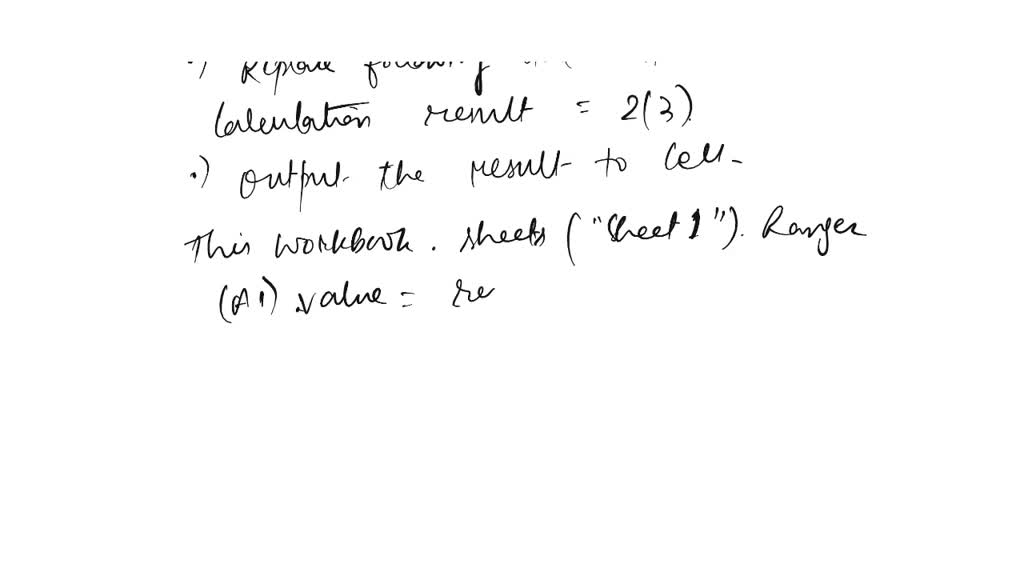 .) Replace following
Calculation result = 2(3)
.) output the result to cell-
This workbook. sheets ("Sheet 1"). Ranger
(A1) .value = re